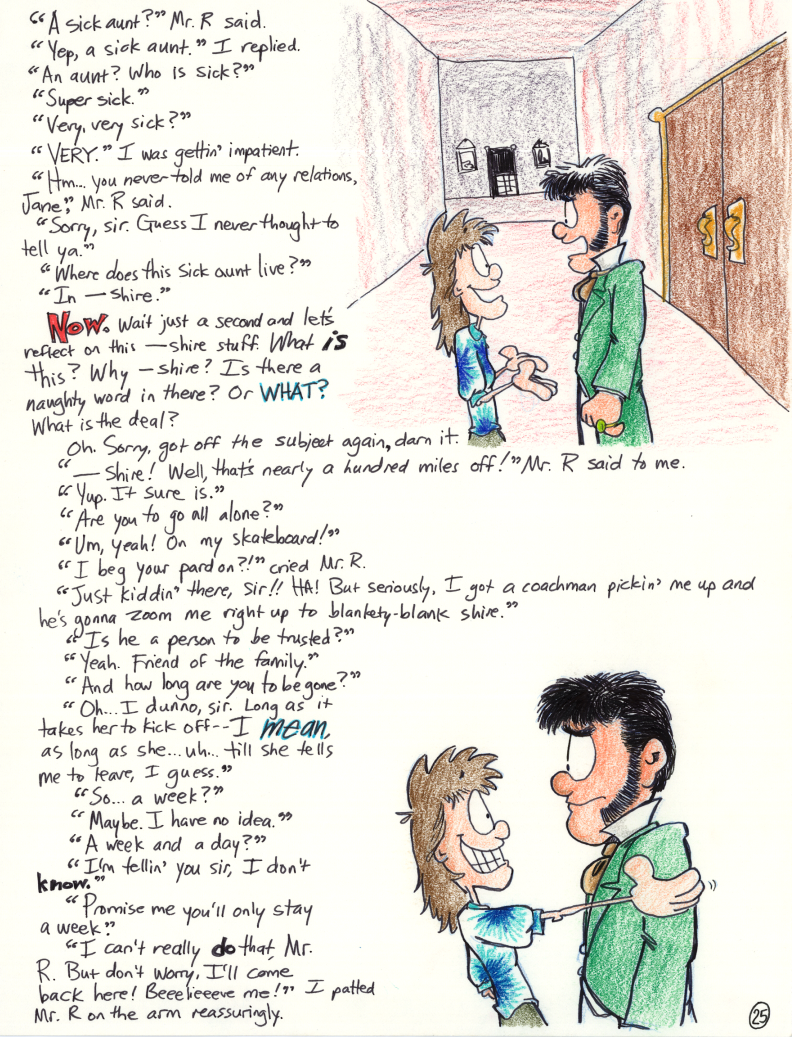 “A sick aunt?” Mr. R said.
“Yep, a sick aunt.” I replied.
“An aunt? Who is sick?”
“Super sick.”
“Very, very sick?”
“VERY.” I was gettin’ impatient.
“Hm... you never told me of any relations,
Jane,” Mr. R said.
“Sorry, sir. Guess I never thought to
tell ya.”
“Where does this sick aunt live?”
“In — shire.”
NOW. Wait just a second and let’s
reflect on this —shire stuff. What is
this? Why —shire? Is there a
naughty word in there? Or WHAT?
What is the deal?
Oh. Sorry, got off the subject again, darn it.
“—Shire! Well, that’s nearly a hundred miles off!” Mr. R said to me.
“Yup. It sure is.”
“Are you to go all alone?”
“Um, yeah! On my skateboard!”
“I beg your pardon?!” cried Mr. R.
“Just kiddin’ there, sir!! HA! But seriously, I got a coachman pickin’ me up and
he’s gonna zoom me right up to blankety-blank shire.”
“Is he a person to be trusted?”
“Yeah. Friend of the family.”
“And how long are you to be gone?”
“Oh...I dunno, sir. Long as it
takes her to kick off--I mean,
as long as she...uh... till she tells
me to leave, I guess.”
“So... a week?”
“Maybe. I have no idea.”
“A week and a day?”
“I’m tellin’ you sir, I don’t
know.”
“Promise me you’ll only stay
a week.”
“I can’t really do that, Mr.
R. But don’t worry, I’ll come
back here! Beeelieeeve me!” I patted
Mr. R on the arm reassuringly.
25